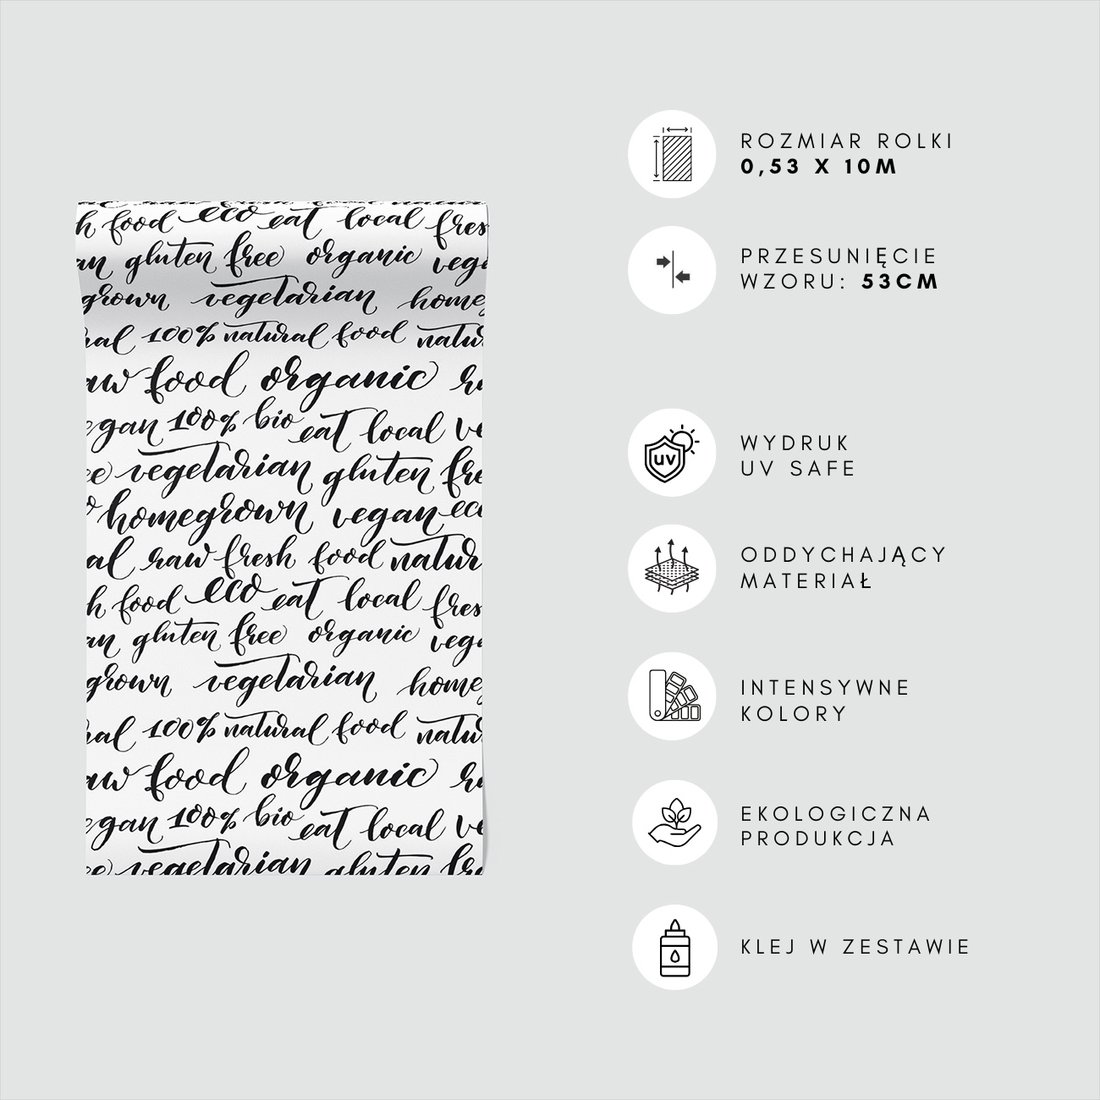 h food eco eat local fres
an gluten free organic vega
grown vegetarian home
ral 100% natural food natu
aw food organic
egan 100% bio eat local ve
ee vegetarian gluten fre
homegrown vegan eco
al raw fresh food natur
h food eco eat local fres
an gluten free organic vega
grown vegetarian home
ral 100% natural food natu
aw food organic
egan 100% bio eat local ve
ee vegetarian gluten fre
ROZMIAR ROLKI
0,53 X 10M
PRZESUNIĘCIE
WZORU: 53CM
WYDRUK
UV SAFE
UV
ODDYCHAJĄCY
MATERIAŁ
INTENSYWNE
KOLORY
EKOLOGICZNA
PRODUKCJA
KLEJ W ZESTAWIE